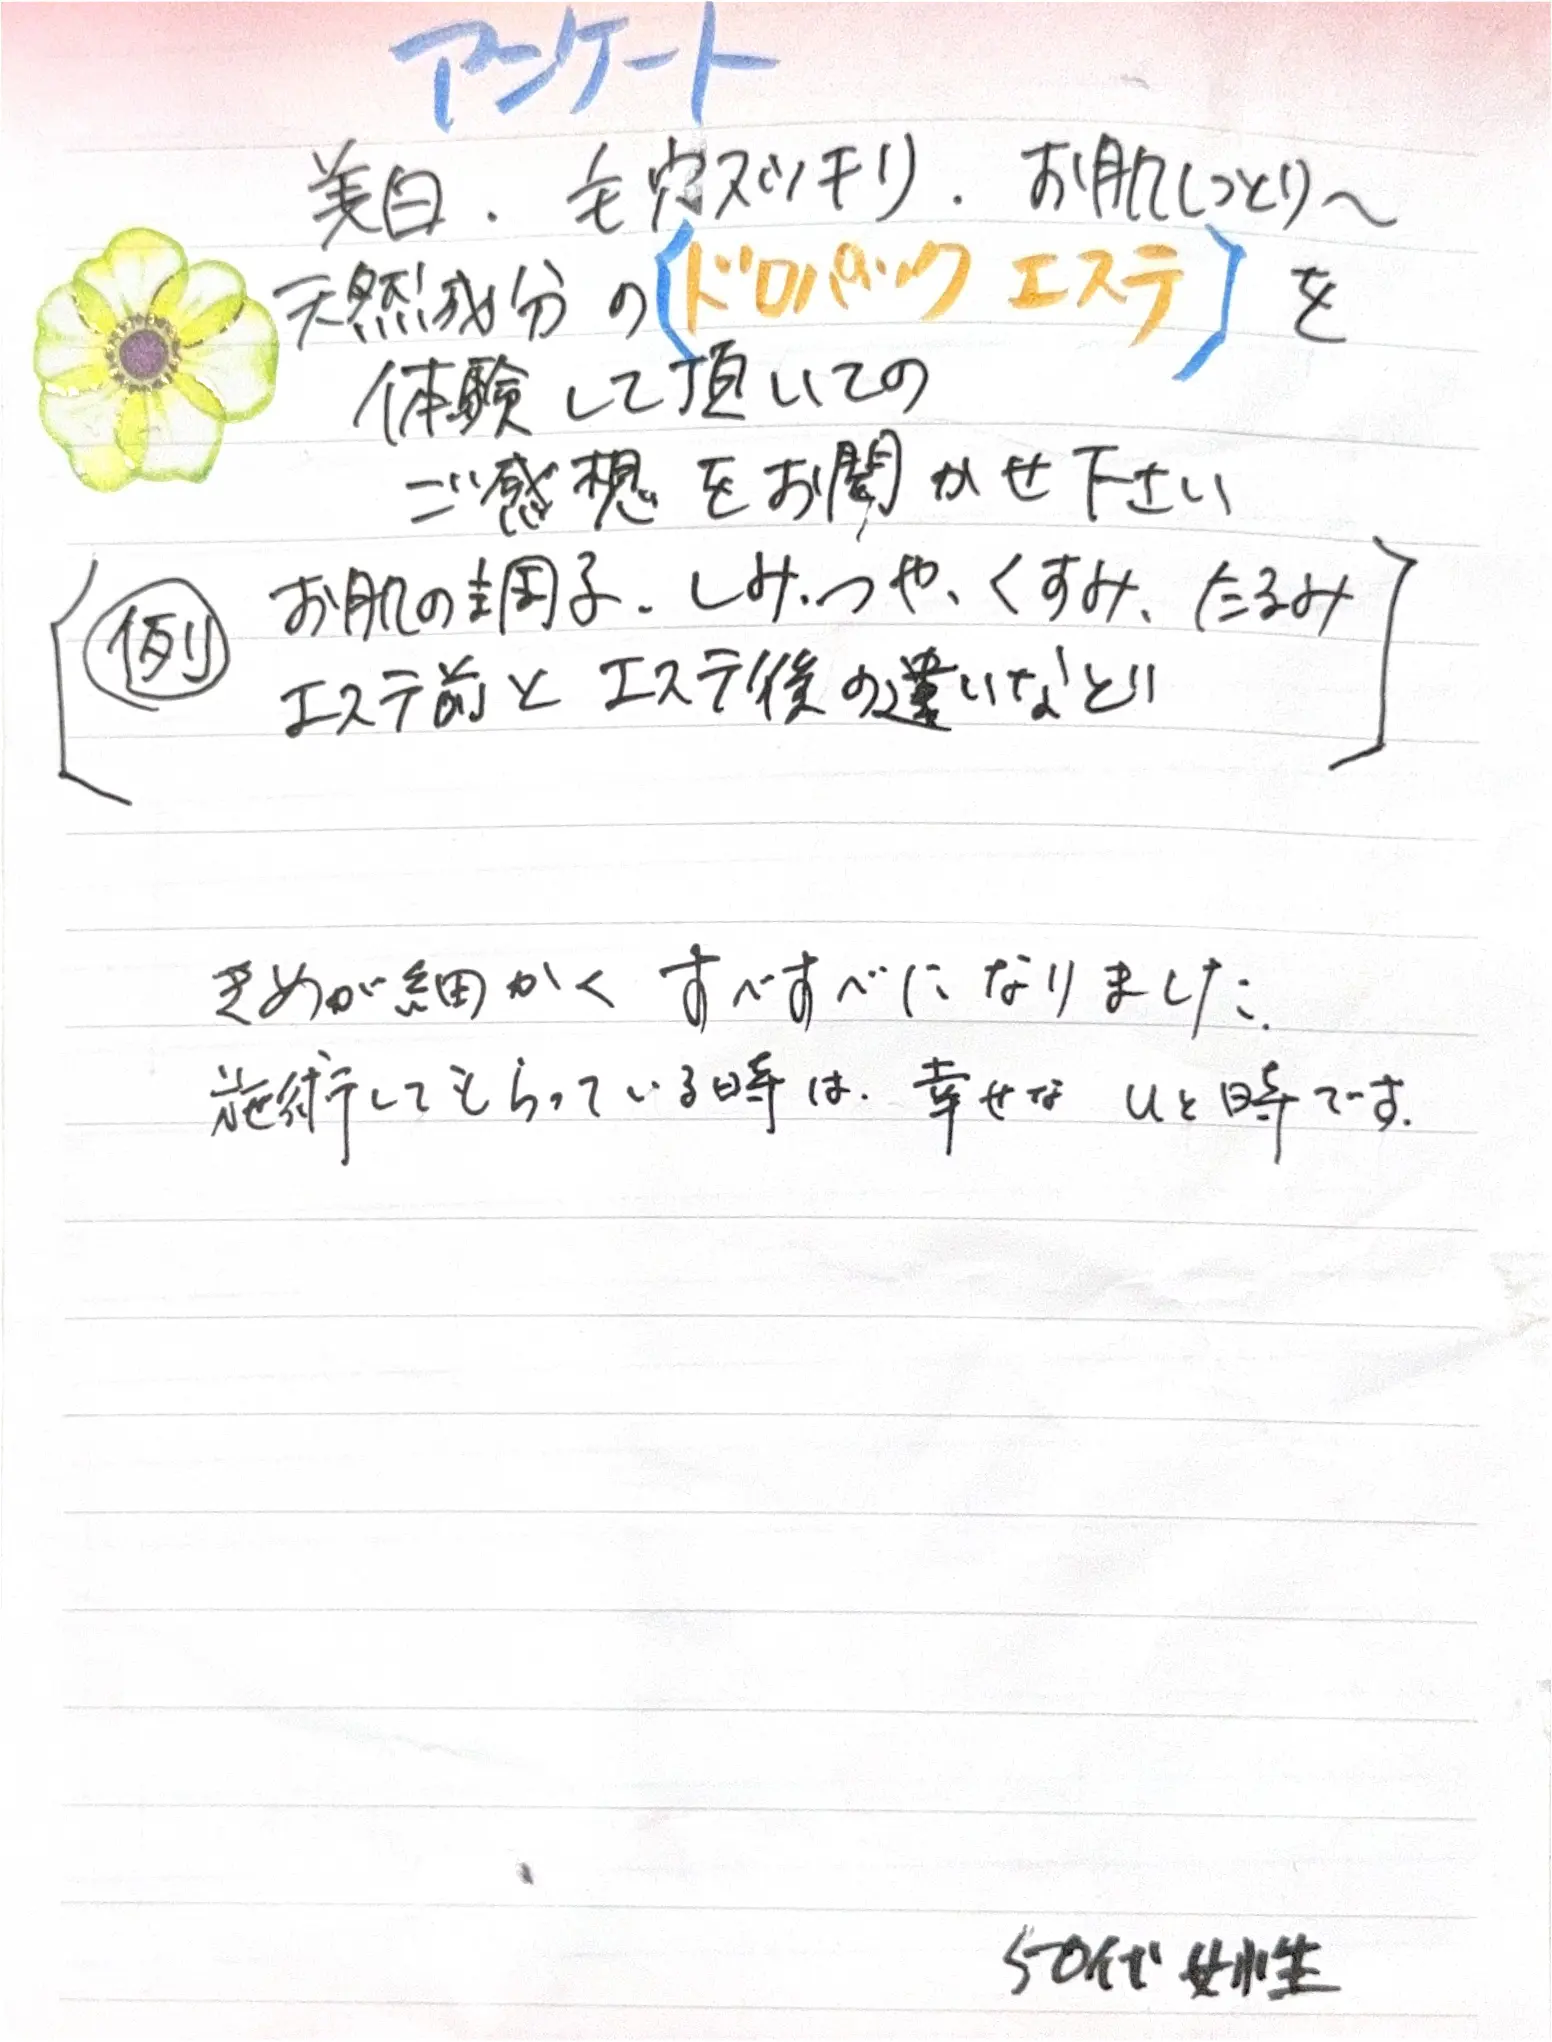 アンケート
美白.毛穴スッキリ.お肌しっとり〜
天然成分の[ドロパック エステ]を
体験して頂いての
ご感想をお聞かせ下さい
[例 お肌の調子.しみ、つや、くすみ、たるみ
エステ前とエステ後の違いなど]
きめが細かくすべすべになりました.
施術してもらっている時は.幸せなひと時です.
50代女性